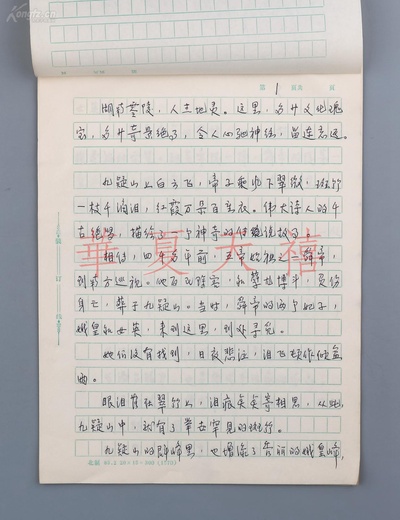 第 1 页共 页
湖南零陵，人杰地灵。这里，多少文化瑰
宝，多少奇景绝了，令人心驰神往，留连忘返。
九疑山上白云飞，帝子乘风下翠微，斑竹
一枝千滴泪，红霞万朵百重衣。伟大诗人的千
古绝唱，描绘了一个神奇的传说故事。
相传，四千多年前，五帝始祖之一舜帝
到南方巡视。他为民除害，和孽龙搏斗，负伤
身亡，葬于九疑山。当时，舜帝的两个妃子，
娥皇和女英，来到这里，到处寻觅。
她们没有找到，日夜悲泣，泪飞顿作倾盆
雨。
眼泪洒在翠竹上，泪痕点点寄相思，从此，
九疑山中，就有了举世罕见的斑竹。
九疑山的群峰里，也增添了秀丽的娥皇峰，
華夏天禧